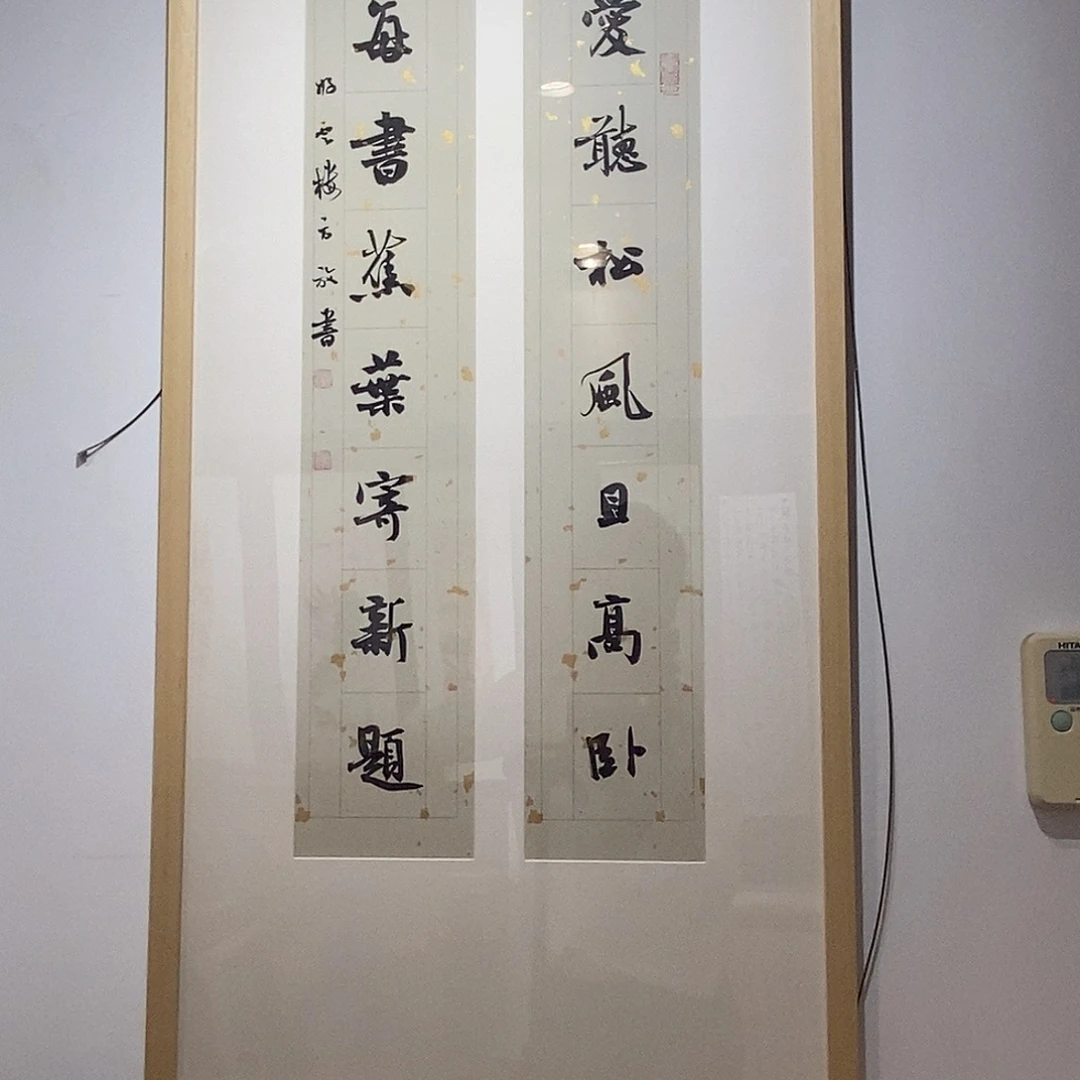 愛聽松風且高卧
每書蕉葉寄新題
樓方放書
HITA